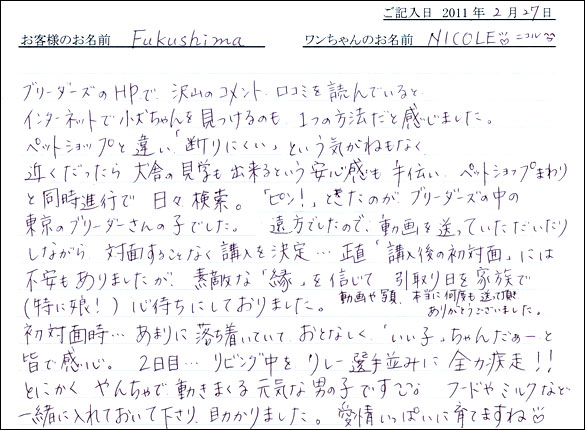 ご記入日 2011年2月27日
お客様のお名前 Fukushima ワンちゃんのお名前 NICOLE ニコル
ブリーダーズのHPで、沢山のコメント、口コミを読んでいると、
インターネットで小犬ちゃんを見つけるのも、1つの方法だと感じました。
ペットショップと違い「断りにくい」という気がねもなく
近くだったら犬舎の見学も出来るという安心感も手伝い、ペットショップまわり
と同時進行で日々検索。「ピン!」ときたのが、ブリーダーズの中の
東京のブリーダーさんの子でした。 遠方でしたので、動画を送っていただいたり
しながら、対面することなく購入を決定… 正直「購入後の初対面」には
不安もありましたが、素敵な「縁」を信じて引取り日を家族で
(特に娘!)心待ちにしておりました。 動画や写真、本当に何度も送って頂き
ありがとうございました。
初対面時… あまりに落ち着いていて、おとなしく、「いい子」ちゃんだぁーと
皆で感心。2日目… リビング中をリレー選手並みに全力疾走!!
とにかくやんちゃで動きまくる元気な男の子です フードやミルクなど
一緒に入れておいて下さり、助かりました。愛情いっぱいに育てますね